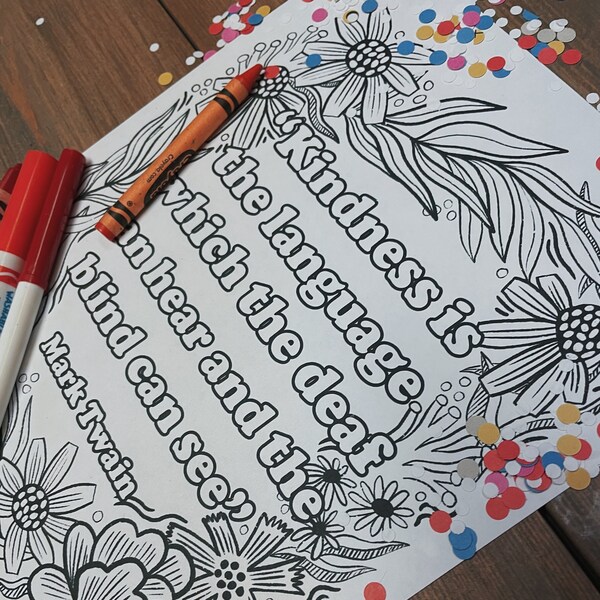 "Kindness is
the language
which the deaf
an hear and the
blind can see"
Mark Twain
Crayola